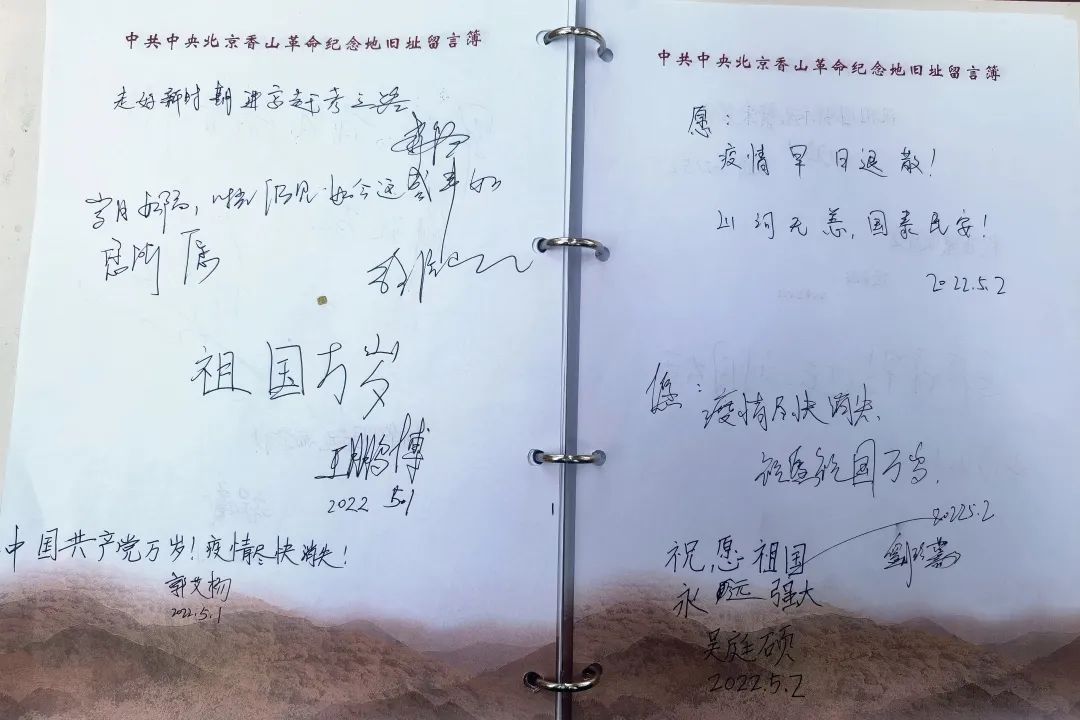 中共中央北京香山革命纪念地旧址留言簿
走好新时期进京赶考之路
岁月如隔，仍见如今这盛世如
愿
祖国万岁
王鹏博
2022 5.1
中国共产党万岁！疫情尽快消失！
郭艾杨
2022.5.1
中共中央北京香山革命纪念地旧址留言簿
愿：
疫情早日退散！
山河无恙，国泰民安！
2022.5.2
愿：疫情尽快消失
祝愿祖国万岁.
2022.5.2
祝愿祖国
永远强大
吴庭硕
2022.5.2